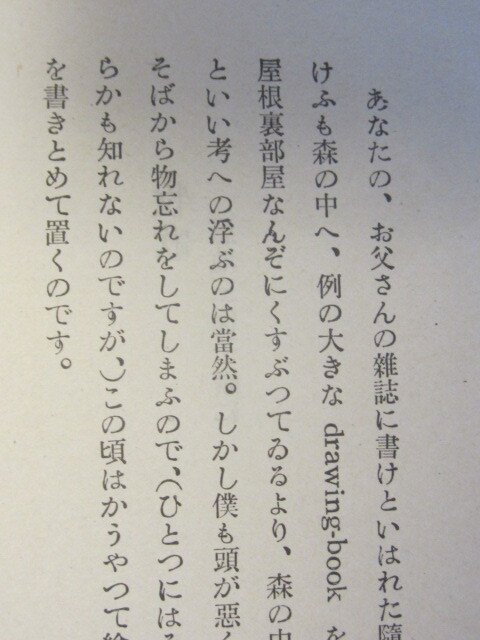 あなたの、お父さんの雜誌に書けといはれた隨
けふも森の中へ、例の大きな drawing-book を
屋根裏部屋なんぞにくすぶつてゐるより、森の中
といい考への浮ぶのは當然。しかし僕も頭が惡く
そばから物忘れをしてしまふので、(ひとつにはそ
らかも知れないのですが、)この頃はかうやつて繪
を書きとめて置くのです。